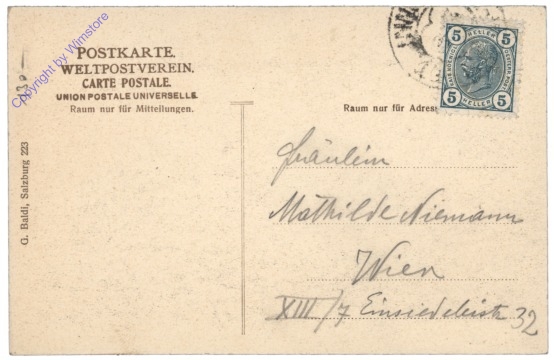 Copyright by Wimstore
POSTKARTE.
WELTPOSTVEREIN.
CARTE POSTALE.
UNION POSTALE UNIVERSELLE
Raum nur für Mitteilungen.
Raum nur für Adres
5 HELLER 5
5 HELLER 5
G. Baldi, Salzburg 223
Fräulein
Mathilde Niemann
Wien
XIII/7 Einsiedeleistr 32